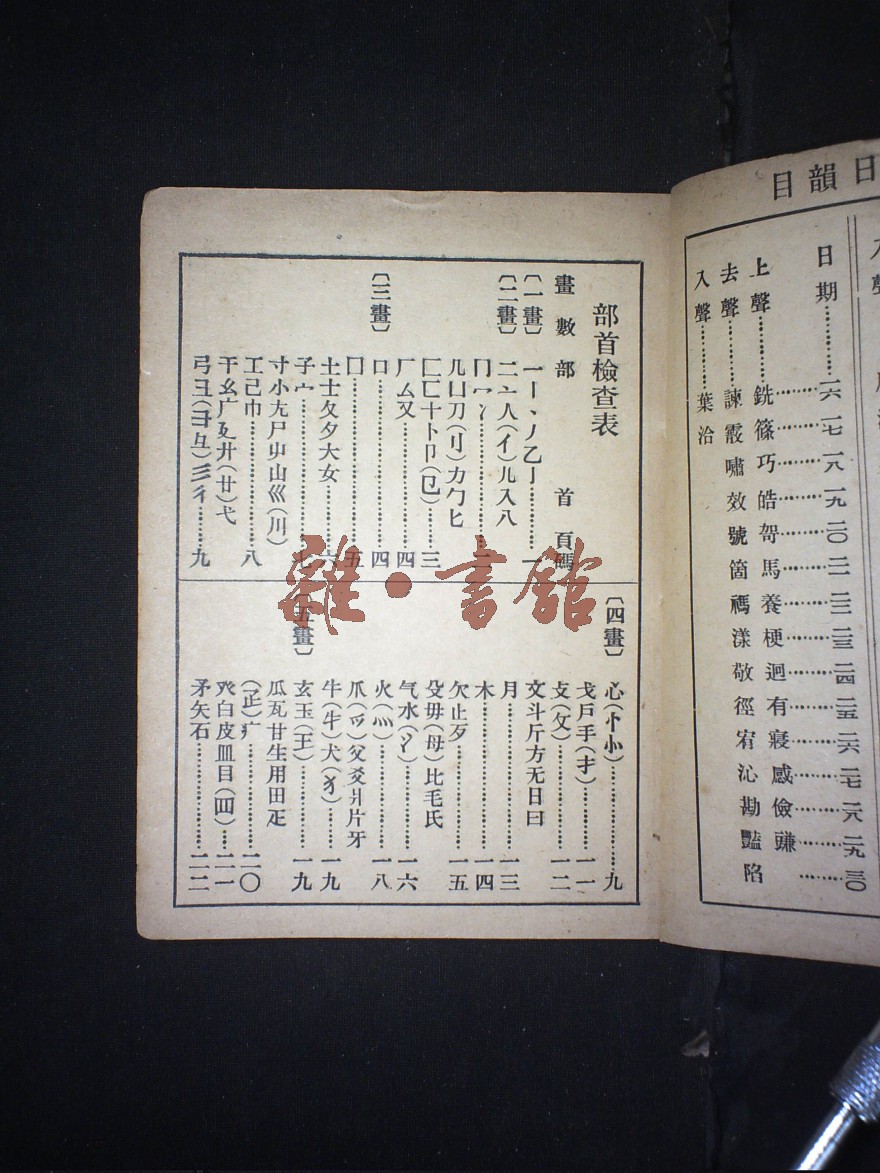 日韻目
入聲
日期……一六 一七 一八 一九 二〇 二一 二二 二三 二四 二五 二六 二七 二八 二九 三〇
上聲……銑 篠 巧 皓 哿 馬 養 梗 迥 有 寢 感 儉 豏
去聲……諫 霰 嘯 效 號 箇 禡 漾 敬 徑 宥 沁 勘 豔 陷
入聲……葉 洽
部首檢查表
畫數部 首頁碼
〔一畫〕 一丨丶丿乙亅……一
〔二畫〕 二亠人(亻)儿入八
冂冖冫……二
几凵刀(刂)力勹匕
匚匸十卜卩(㔾)……三
厂厶又……四
〔三畫〕 口……四
囗……五
土士夂夊夕大女……六
子宀……七
寸小尢尸屮山巛(川)
工己巾……八
干幺广廴廾(廿)弋
弓彐(彑)彡彳……九
〔四畫〕 心(忄㣺)……九
戈戶手(扌)……一一
攴(攵)……一二
文斗斤方无日曰
月……一三
木……一四
欠止歹……一五
殳毋(母)比毛氏
气水(氵)……一六
火(灬)……一八
爪(爫)父爻爿片牙
牛(牜)犬(犭)……一九
〔五畫〕 玄玉(王)……一九
瓜瓦甘生用田疋
(𤴔)疒……二〇
癶白皮皿目(罒)……二一
矛矢石……二二
雜·書館